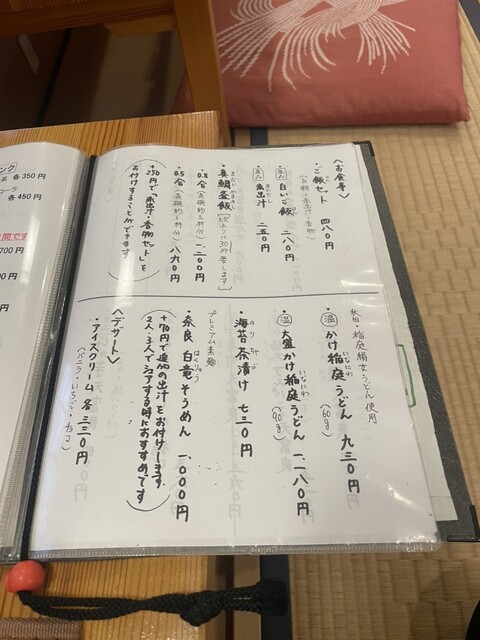 〈お食事〉
・ご飯セット 四八〇円
（白飯・赤出汁・香物）
単品 白いご飯 二八〇円
単品 赤出汁 二五〇円
・真鯛釜飯
0.8合（茶碗約2杯分）一、二〇〇円
0.5合（茶碗約1杯分）八六〇円
+250円で「赤出汁・香物セット」を
お付けすることができます
秋田・稲庭絹女うどん使用
・温 かけ稲庭うどん 九三〇円
いなにわ
（60g）
・温 大盛かけ稲庭うどん 一、一八〇円
いなにわ
（90g）
・海苔茶漬け 七三〇円
のりちゃづ
プレミアム素麺
・奈良 白竜そうめん 一、〇〇〇円
はくりゅう
+70円で追加の出汁をお付けします。
2人・3人でシェアする時におすすめです
〈デザート〉
・アイスクリーム 各三二〇円
（バニラ・いちご・チョコ）
ンク
茶 各 350 円
コーラ
各 450 円
間です
700 円
00 円
円